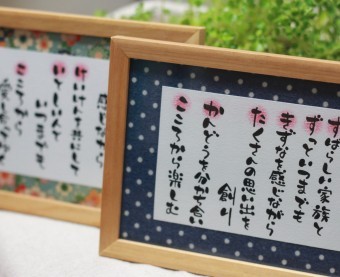 すばらしい家族と
ずっといつまでも
きずなを感じながら
たくさんの思い出を
創り
かんどうを分かち合い
こころから楽しむ
感じながら
けいけんを共にして
いとしい人と
いつまでも
こころから